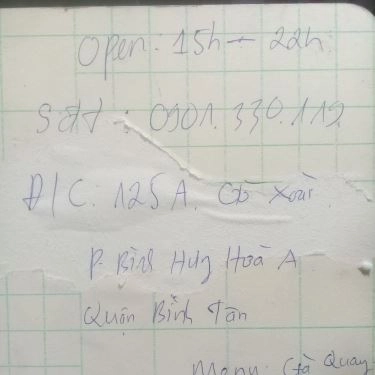 Open: 15h - 22h
Sđt: 0901.330.119
Đ/C: 125A. Gò Xoài.
P. Bình Hưng Hoà A
Quận Bình Tân
Menu: Gà Quay